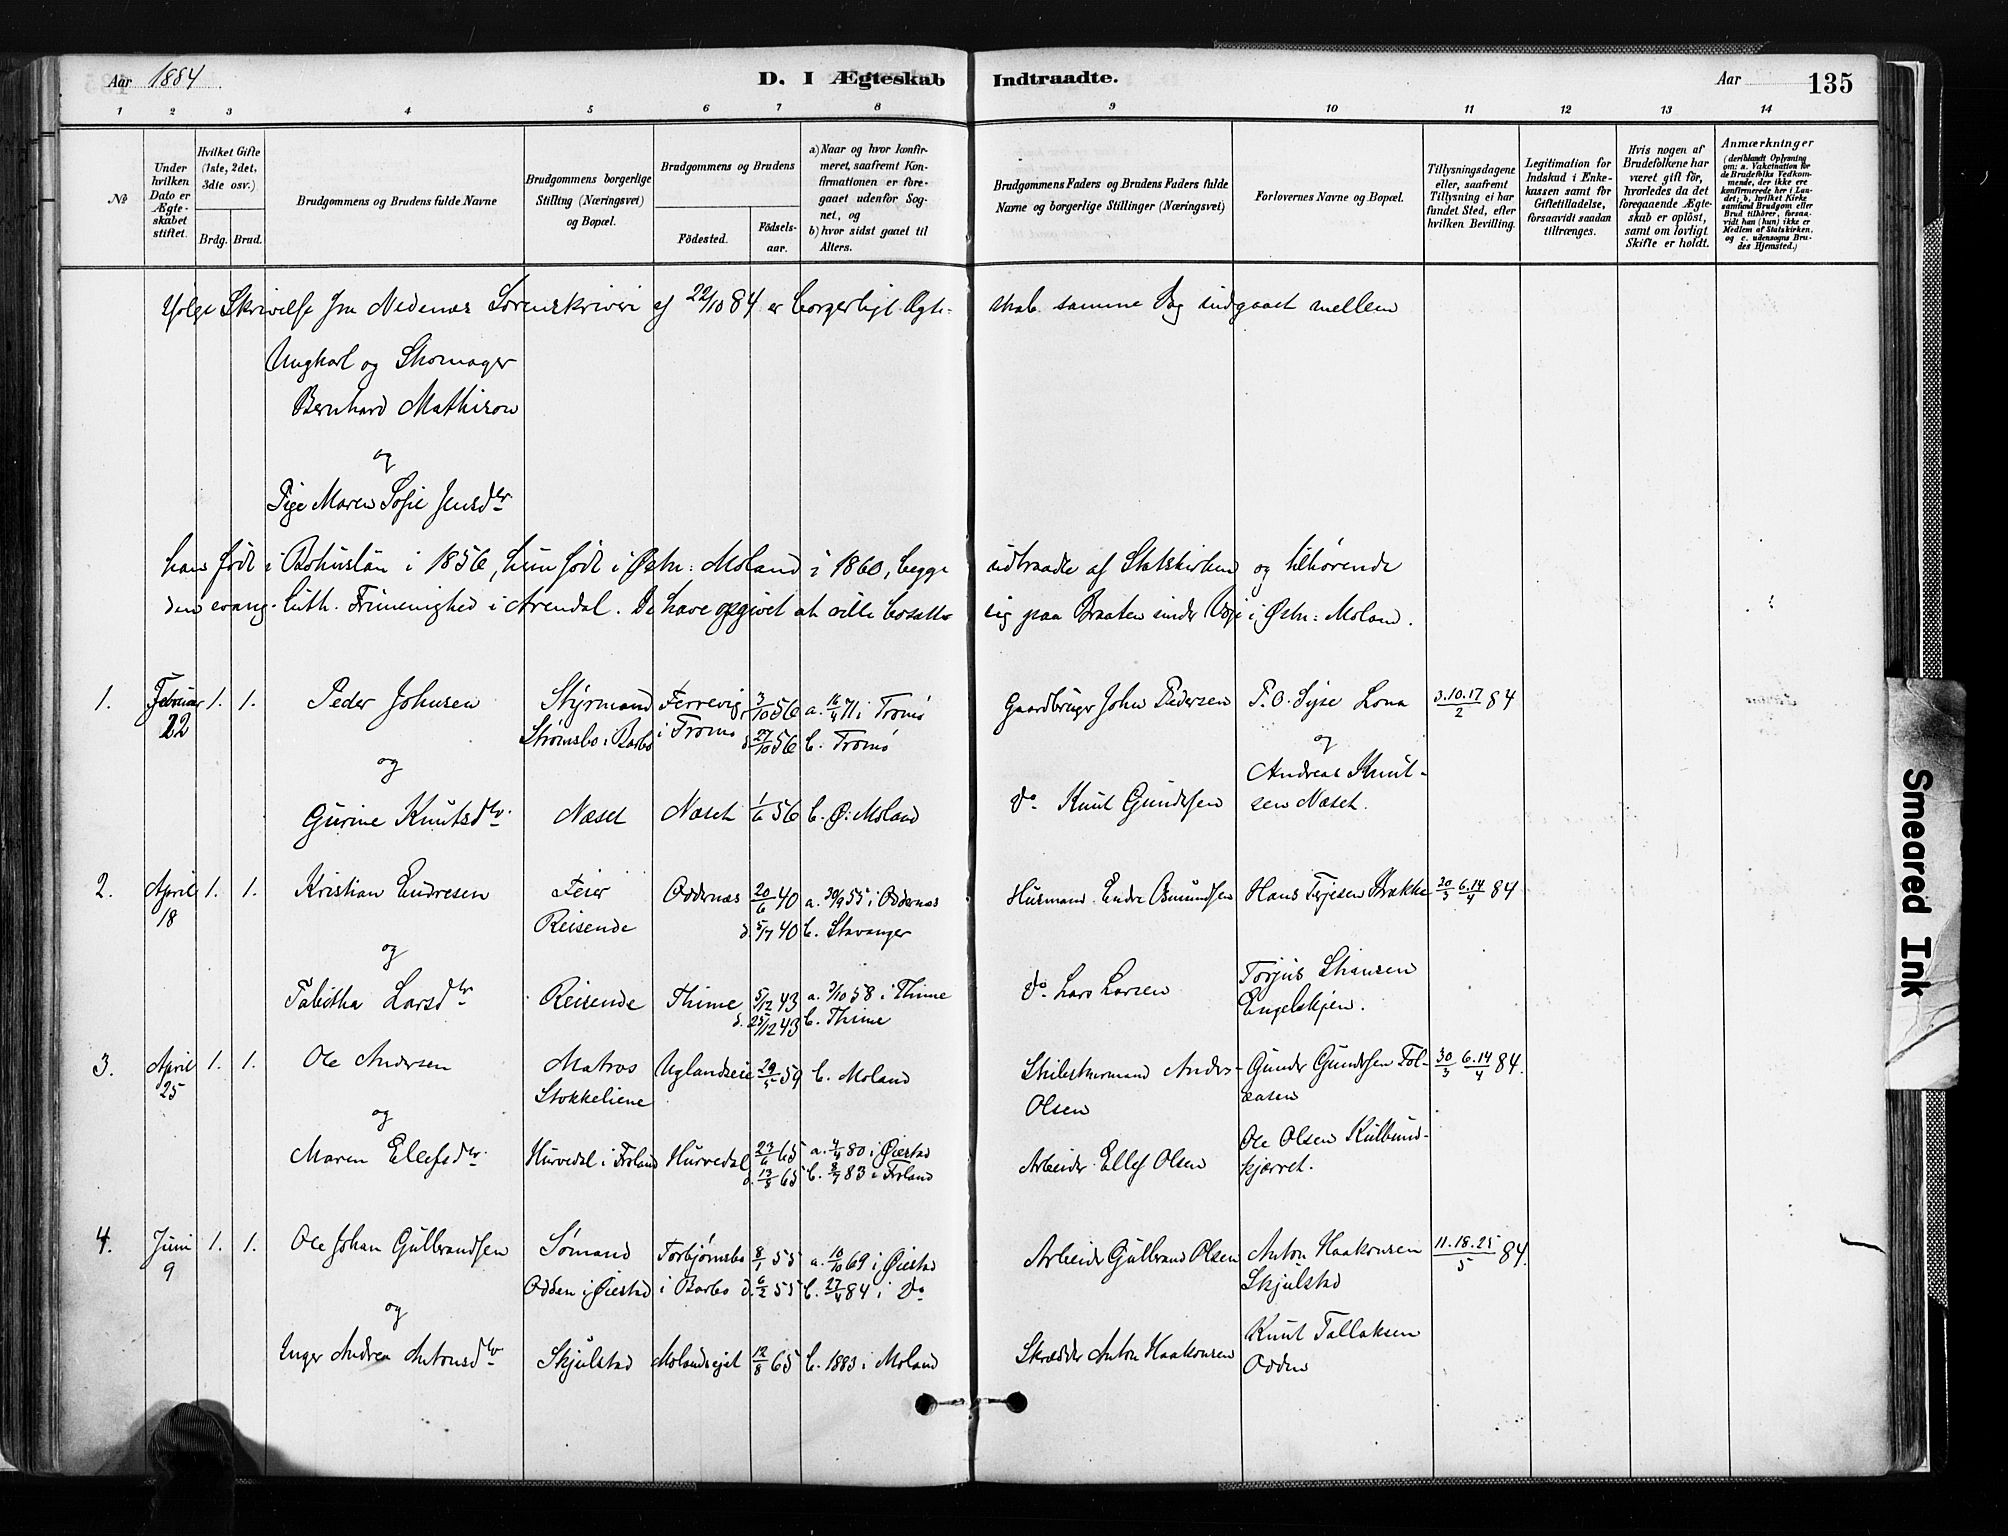 Aar 1884
D. I Ægteskab Indtraadte.
Aar
135
1 2 3 4 5 6 7 8 9 10 11 12 13 14
№
Under hvilken Dato er Ægteskabet stiftet.
Hvilket Gifte (1ste, 2det, 3die osv.)
Brdg. Brud.
Brudgommens og Brudens fulde Navne
Brudgommens borgerlige Stilling (Næringsvei) og Bopæl.
Brudgommens og Brudens
Födested.
Födsels-aar.
a) Naar og hvor konfirmeret, saafremt Konfirmationen er foregaaet udenfor Sognet, og
b) hvor sidst gaaet til Alters.
Brudgommens Faders og Brudens Faders fulde Navne og borgerlige Stillinger (Næringsvei)
Forlovernes Navne og Bopæl.
Tillysningsdagene eller, saafremt Tillysning ei har fundet Sted, efter hvilken Bevilling.
Legitimation for Indskud i Enkekassen samt for Giftetilladelse, forsaavidt saadan tiltrænges.
Hvis nogen af Brudefolkene har været gift för, hvorledes da det foregaaende Ægteskab er oplöst, samt om lovligt Skifte er holdt.
Anmærkninger (deriblandt Oplysning om: a. Vakcination för de Brudefolks Vedkommende, der ikke ere konfirmerede her i Landet; b. hvilket Kirkesamfund Brudgom eller Brud tilhörer, forsaavidt han (hun) ikke er Medlem af Statskirken, og c. udensogns Brudes Hjemsted.)
Ifølge Skrivelse fra Nedenæs Sorenskriveri af 22/10 84 er borgerligt Ægte- skab samme Dag indgaaet mellem
Ungkarl og Skomager
Bernhard Mathison
og
Pige Maren Sofie Jensdtr
han født i Bohuslän i 1856, hun født i Østr: Moland i 1860, begge udtraadte af Statskirken og tilhørende
den evang. luth. Frimenighed i Arendal. De have opgivet at ville bosætte sig paa Braaten under i Østr: Moland.
1. Februar 1. 1. Peder Johnsen Styrmand Færrevig 3/10 56 a. 16/4 71 i Tromø Gaardbruger John Pedersen P. O. Syse Lona 3.10.17/2 84
22 Strømsbo i Barbo i Tromø d. 27/10 56 b. Tromø
og og
Gurine Knutsdtr. Næset Næset 1/6 56 b. Ø: Moland Do Knut Gundersen Andreas Knut-
sen Næset.
2. April 1. 1. Kristian Endresen Feier Oddernæs 20/6 40 a. 30/9 55 i Oddernæs Husmand Endre Osmundsen Hans Terjesen Brække 30/3 6.14/4 84
18 Reisende d. 5/7 40 b. Stavanger
og
Tabitha Larsdtr Reisende Thime 5/12 43 a. 3/10 58 i Thime Do Lars Larsen Torjus
d. 25/12 43 b. Thime Engelskjen.
3. April 1. 1. Ole Andersen Matros Uglandseie 29/5 59 b. Moland Anders Gunder Gundersen Fol- 30/3 6.14/4 84.
25 Stokkeliene Olsen eaasen
og
Maren Elefsdtr. Hurvedal i Froland Hurvedal 23/6 65 a. 4/4 80 i Øiestad Arbeider Ellef Olsen Ole Olsen Kulbund-
d. 13/8 65 b. 8/7 83 i Froland kjærret.
4. Juni 1. 1. Ole Johan Gulbrandsen Sømand Torbjørnsbo 8/1 55 a. 10/10 69 i Øiestad Arbeider Gulbrand Olsen Anton Haakonsen 11.18.25/5 84.
9 Odden i Øiestad i Barbo d. 6/2 55 b. 27/4 84 i Do Skjulstad
og
Inger Andrea Antonsdtr Skjulstad Molandsejet 12/8 65 b. 1883 i Moland Skrædder Anton Haakonsen Knut Tallaksen
Odden
Smeared Ink